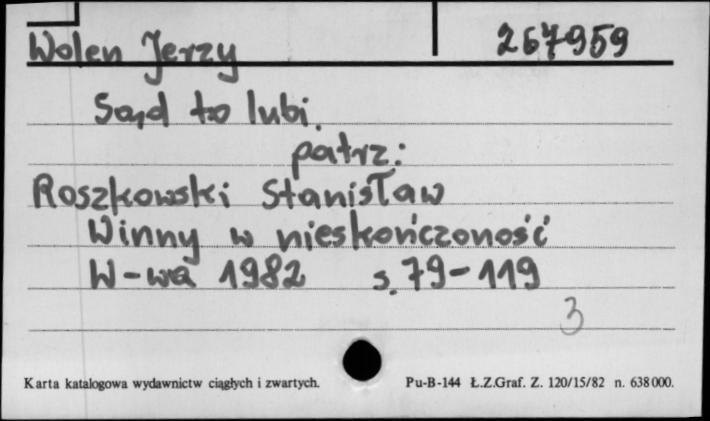 Wolen Jerzy 267959
Sąd to lubi.
patrz:
Roszkowski Stanisław
Winny w nieskończoność
W-wa 1982 s. 79-119
3
Karta katalogowa wydawnictw ciągłych i zwartych. Pu-B-144 Ł.Z.Graf. Z. 120/15/82 n. 638000.